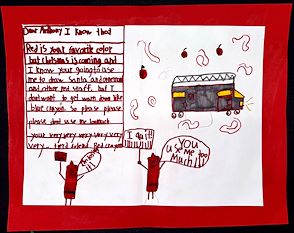 Dear Anthony I know that
Red is your favorite color
but christmas is coming and I
know your going to use
me to draw Santa and
and other red stuff. but I
dont want to get worn down like
blue crayon. So please please
please dont use me too much
your very very very very very
very tired friend Red crayon
I quit!
You
use me too
much!!!